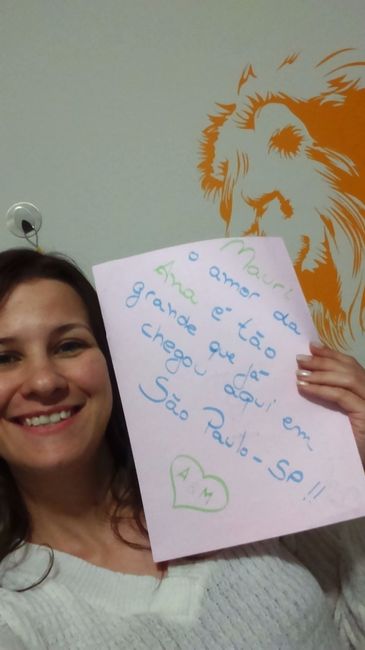 Mauri
o amor da
Ana é tão
grande que já
chegou aqui em
São Paulo-SP!!
A M